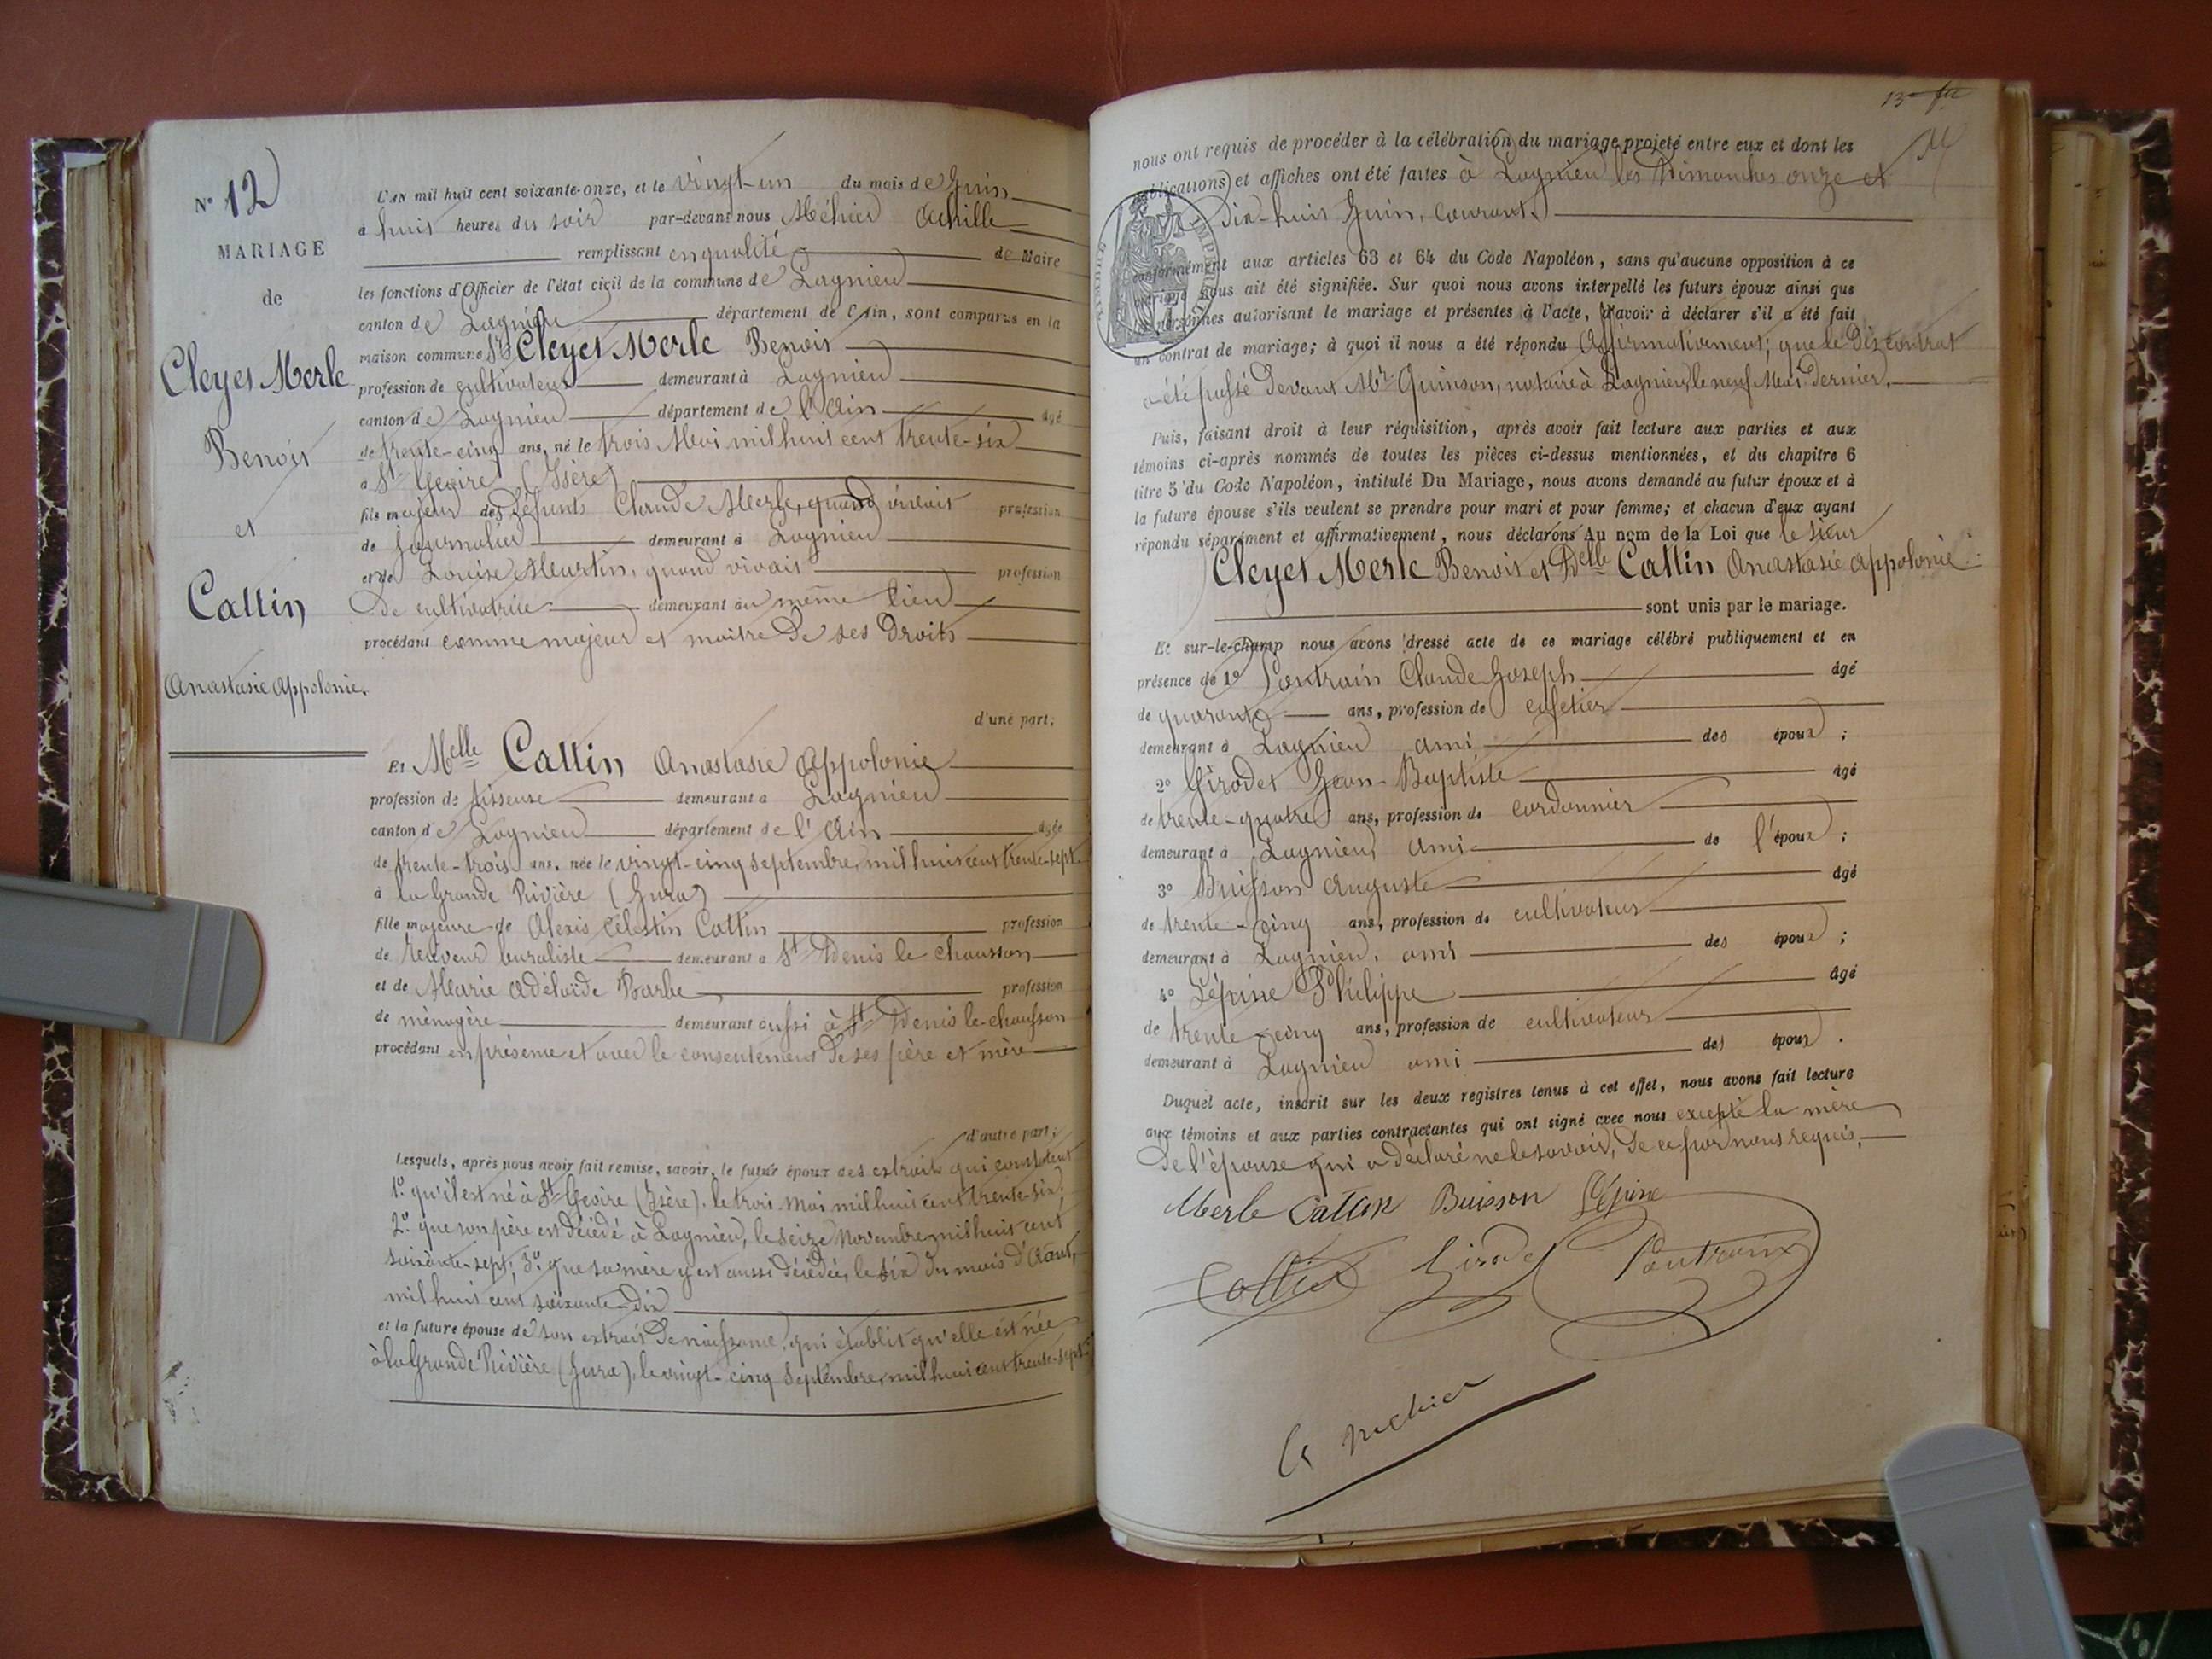 N° 12
MARIAGE
de
Cleyet Merle
Benoit
et
Cattin
Anastasie Appolonie.
L'AN mil huit cent soixante-onze, et le vingt-un du mois de Juin
à huit heures du soir par-devant nous Méhier Achille
remplissant en qualité de Maire
les fonctions d'Officier de l'état civil de la commune de Lagnieu
canton de Lagnieu département de l'Ain, sont comparus en la
maison commune Sr Cleyet Merle Benoit
profession de cultivateur demeurant à Lagnieu
canton de Lagnieu département de l'Ain âgé
de trente-cinq ans, né le trois Mai mil huit cent trente-six
à St Geoire (Isère)
fils majeur des défunts Claude Merle, quand vivait profession
de journalier demeurant à Lagnieu
et de Louise Meurtin, quand vivait profession
de cultivatrice demeurant au même lieu
procédant comme majeur et maître de ses droits
d'une part;
Et Melle Cattin Anastasie Appolonie
profession de tisseuse demeurant à Lagnieu
canton de Lagnieu département de l'Ain âgée
de trente-trois ans, née le vingt-cinq septembre, mil huit cent trente-sept
à la Grande Rivière (Jura)
fille majeure de Alexis Célestin Cattin profession
de receveur buraliste demeurant à St Denis le chausson
et de Marie Adélaïde Barbe profession
de ménagère demeurant aussi à St Denis le-chausson
procédant en présence et avec le consentement de ses père et mère
d'autre part;
Lesquels, après nous avoir fait remise, savoir, le futur époux des extraits qui constatent
1° qu'il est né à St Geoire (Isère), le trois Mai mil huit cent trente-six;
2° que son père est décédé à Lagnieu, le seize Novembre mil huit cent
soixante-sept; 3° que sa mère y est aussi décédée, le six du mois d'Août,
mil huit cent soixante-dix
et la future épouse de son extrait de naissance, qui établit qu'elle est née
à la Grande Rivière (Jura), le vingt-cinq Septembre, mil huit cent trente-sept
13
nous ont requis de procéder à la célébration du mariage projeté entre eux et dont les
publications et affiches ont été faites à Lagnieu les Dimanches onze et
dix-huit Juin, courant.
conformément aux articles 63 et 64 du Code Napoléon, sans qu'aucune opposition à ce
mariage nous ait été signifiée. Sur quoi nous avons interpellé les futurs époux ainsi que
les personnes autorisant le mariage et présentes à l'acte, d'avoir à déclarer s'il a été fait
un contrat de mariage; à quoi il nous a été répondu Affirmativement; que le dit contrat
a été passé devant Mr Quinson, notaire à Lagnieu, le neuf Mai dernier.
Puis, faisant droit à leur réquisition, après avoir fait lecture aux parties et aux
témoins ci-après nommés de toutes les pièces ci-dessus mentionnées, et du chapitre 6
titre 5 du Code Napoléon, intitulé Du Mariage, nous avons demandé au futur époux et à
la future épouse s'ils veulent se prendre pour mari et pour femme; et chacun d'eux ayant
répondu séparément et affirmativement, nous déclarons Au nom de la Loi que le sieur
Cleyet Merle Benoit et Delle Cattin Anastasie Appolonie
sont unis par le mariage.
Et sur-le-champ nous avons dressé acte de ce mariage célébré publiquement et en
présence de 1° Pontrain Claude Joseph âgé
de quarante ans, profession de cafetier
demeurant à Lagnieu ami des époux;
2° Girodet Jean-Baptiste âgé
de trente-quatre ans, profession de cordonnier
demeurant à Lagnieu, ami de l'époux;
3° Buisson Auguste âgé
de trente-cinq ans, profession de cultivateur
demeurant à Lagnieu, ami des époux;
4° Lépine Philippe âgé
de trente-cinq ans, profession de cultivateur
demeurant à Lagnieu ami des époux.
Duquel acte, inscrit sur les deux registres tenus à cet effet, nous avons fait lecture
aux témoins et aux parties contractantes qui ont signé avec nous excepté la mère
de l'épouse qui a déclaré ne le savoir, de ce par nous requis.
Merle Cattin Buisson Lépine
Cattin Girodet Pontrain
A Méhier